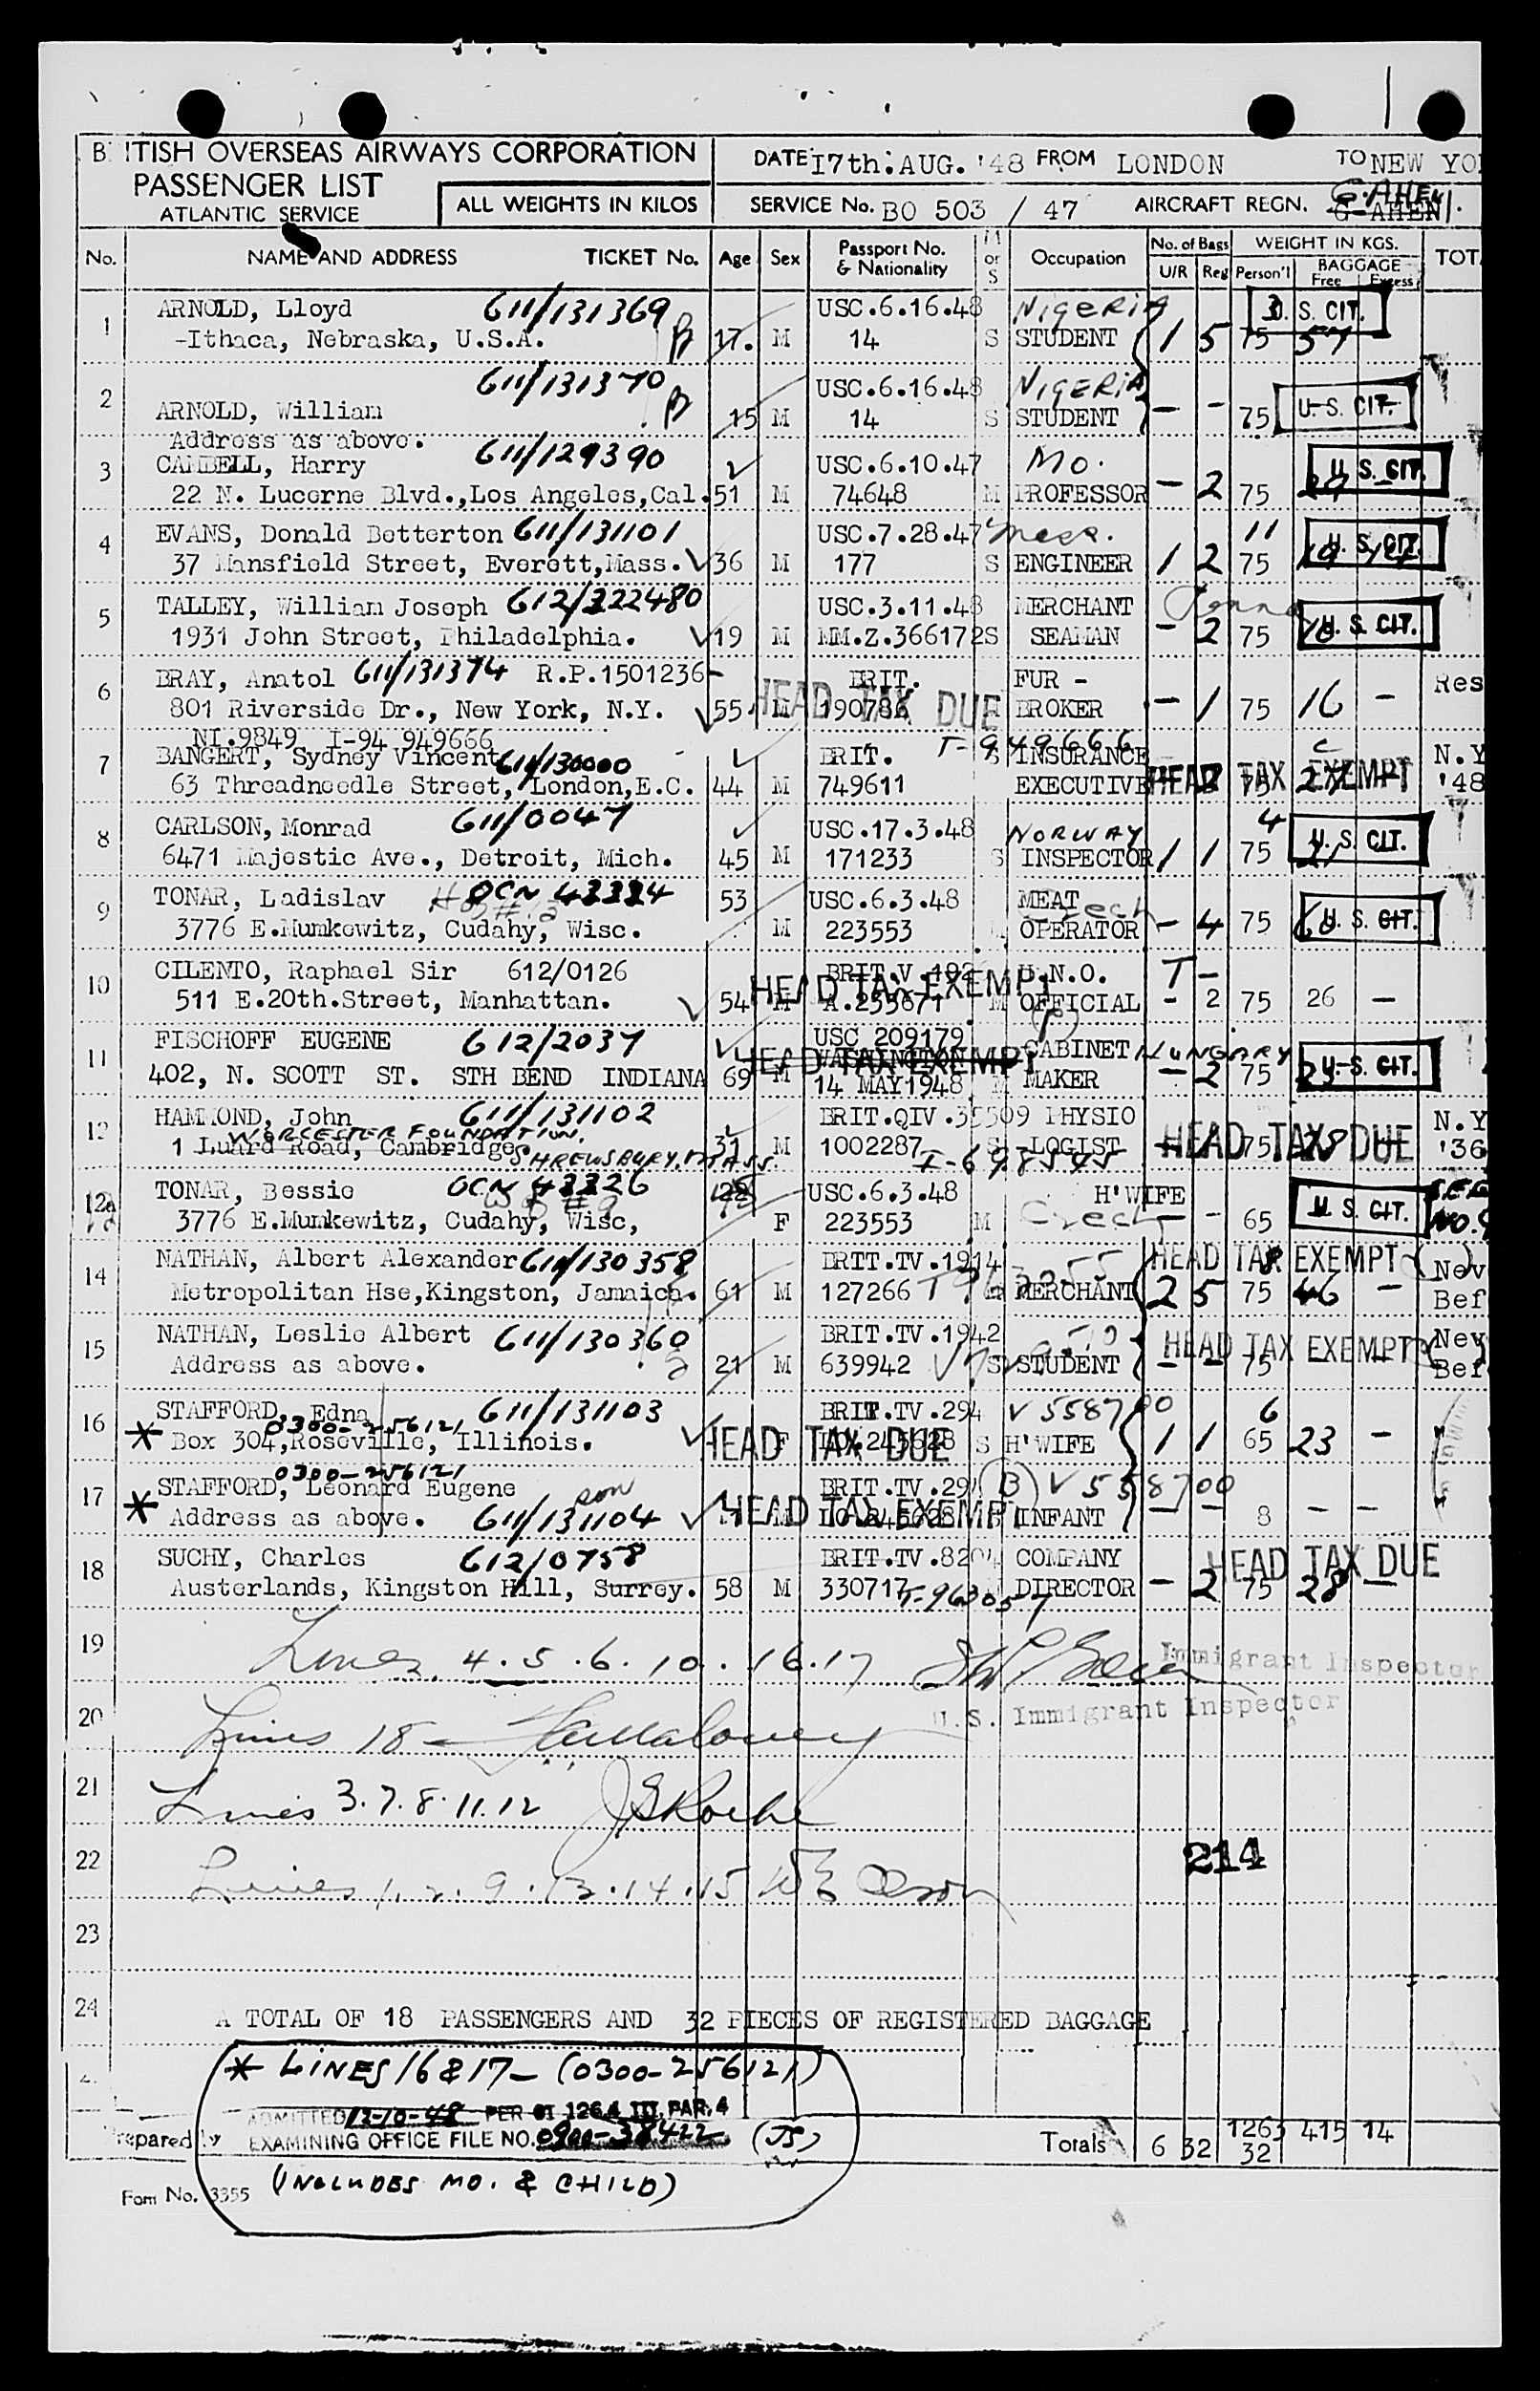 BRITISH OVERSEAS AIRWAYS CORPORATION
PASSENGER LIST
ATLANTIC SERVICE
ALL WEIGHTS IN KILOS
DATE 17th. AUG. '48 FROM LONDON TO NEW YO
SERVICE No. BO 503 / 47 AIRCRAFT REGN. G-AHEN
G-AHEN
No. NAME AND ADDRESS TICKET No. Age Sex Passport No. & Nationality M or S Occupation No. of Bags U/R Reg WEIGHT IN KGS. Person'l BAGGAGE Free Excess TOT
1 ARNOLD, Lloyd 611/131369 USC.6.16.48 Nigeria U.S. CIT.
-Ithaca, Nebraska, U.S.A. B 17. M 14 S STUDENT 1 5 75 57 -
611/131370 USC.6.16.48 NIGERIA
2 ARNOLD, William B 15 M 14 S STUDENT - - 75 U.S. CIT.
Address as above.
3 CAMBELL, Harry 611/129390 USC.6.10.47 Mo. U.S. CIT.
22 N. Lucerne Blvd.,Los Angeles,Cal. 51 M 74648 M PROFESSOR - 2 75
4 EVANS, Donald Betterton 611/131101 USC.7.28.47 Mass. 11 U.S. CIT.
37 Mansfield Street, Everett,Mass. 36 M 177 S ENGINEER 1 2 75
5 TALLEY, William Joseph 612/222480 USC.3.11.48 MERCHANT Penna
1931 John Street, Philadelphia. 19 M MM.Z.366172 S SEAMAN - 2 75 U.S. CIT.
6 BRAY, Anatol 611/131374 R.P.1501236- BRIT. FUR - Res
801 Riverside Dr., New York, N.Y. 55 M 190786 BROKER - 1 75 16 -
HEAD TAX DUE
NI.9849 I-94 949666 T-949666
7 BANGERT, Sydney Vincent 611/130000 BRIT. S INSURANCE N.Y
63 Threadneedle Street, London,E.C. 44 M 749611 EXECUTIVE HEAD TAX EXEMPT '48
8 CARLSON, Monrad 611/0047 USC.17.3.48 NORWAY 4 U.S. CIT.
6471 Majestic Ave., Detroit, Mich. 45 M 171233 S INSPECTOR 1 1 75 21
9 TONAR, Ladislav OCN 42324 53 USC.6.3.48 MEAT Czech
3776 E.Munkewitz, Cudahy, Wisc. M 223553 OPERATOR - 4 75 U.S. CIT.
10 CILENTO, Raphael Sir 612/0126 BRIT.V.192 U.N.O. T-
511 E.20th.Street, Manhattan. 54 M A.255671 M OFFICIAL - 2 75 26 -
HEAD TAX EXEMPT
11 FISCHOFF EUGENE 612/2037 USC 209179 WASHINGTON CABINET HUNGARY
402, N. SCOTT ST. STH BEND INDIANA 69 M 14 MAY1948 M MAKER - 2 75 23 U.S. CIT.
HEAD TAX EXEMPT
12 HAMMOND, John 611/131102 BRIT.QIV.35509 PHYSIO N.Y
WORCESTER FOUNDATION,
1 Luard Road, Cambridge. SHREWSBURY. MASS. 31 M 1002287 S LOGIST HEAD TAX DUE '36
I-698545
12a TONAR, Bessie OCN 42326 USC.6.3.48 H'WIFE U.S. CIT. SEE
3776 E.Munkewitz, Cudahy, Wisc, F 223553 M Czech - - 65 NO.9
14 NATHAN, Albert Alexander 611/130358 BRIT.TV.1914 HEAD TAX EXEMPT Nev
Metropolitan Hse,Kingston, Jamaica. 61 M 127266 MERCHANT 2 5 75 46 - Bef
15 NATHAN, Leslie Albert 611/130360 BRIT.TV.1942 HEAD TAX EXEMPT Nev
Address as above. 21 M 639942 S STUDENT - - 75 Bef
16 STAFFORD, Edna 611/131103 BRIT.TV.294 V 558700 6
0300-256121
* Box 304,Roseville, Illinois. F LO.245628 S H'WIFE 1 1 65 23 -
HEAD TAX DUE
0300-256121
17 STAFFORD, Leonard Eugene son BRIT.TV.294 B V 558700
* Address as above. 611/131104 M INFANT - - 8 - -
HEAD TAX EXEMPT
18 SUCHY, Charles 612/0758 BRIT.TV.8204 COMPANY HEAD TAX DUE
Austerlands, Kingston Hill, Surrey. 58 M 330717 DIRECTOR - 2 75 28 -
T-963057
19 Lines 4.5.6.10.16.17 Immigrant Inspector
20 U.S. Immigrant Inspector
Lines 18 - Maloney
21 Lines 3.7.8.11.12 JS Roche
22 214
Lines 1.2.9.13.14.15 Olson
23
24 A TOTAL OF 18 PASSENGERS AND 32 PIECES OF REGISTERED BAGGAGE
* LINES 16 & 17 - (0300-256121)
ADMITTED 12-10-48 PER OI 126.4 III, PAR. 4
Prepared by EXAMINING OFFICE FILE NO. 0900-38422 (JS) Totals 6 32 1263 415 14
32
(INCLUDES MO. & CHILD)
Form No. 3355